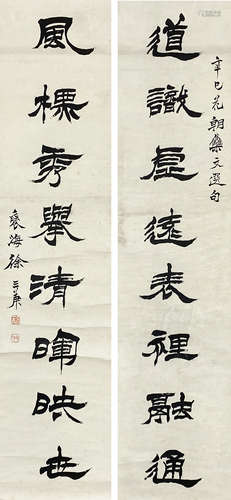 辛巳花朝集文選句
道識虛遠表裡融通
風標秀舉清暉映世
褎海徐三庚